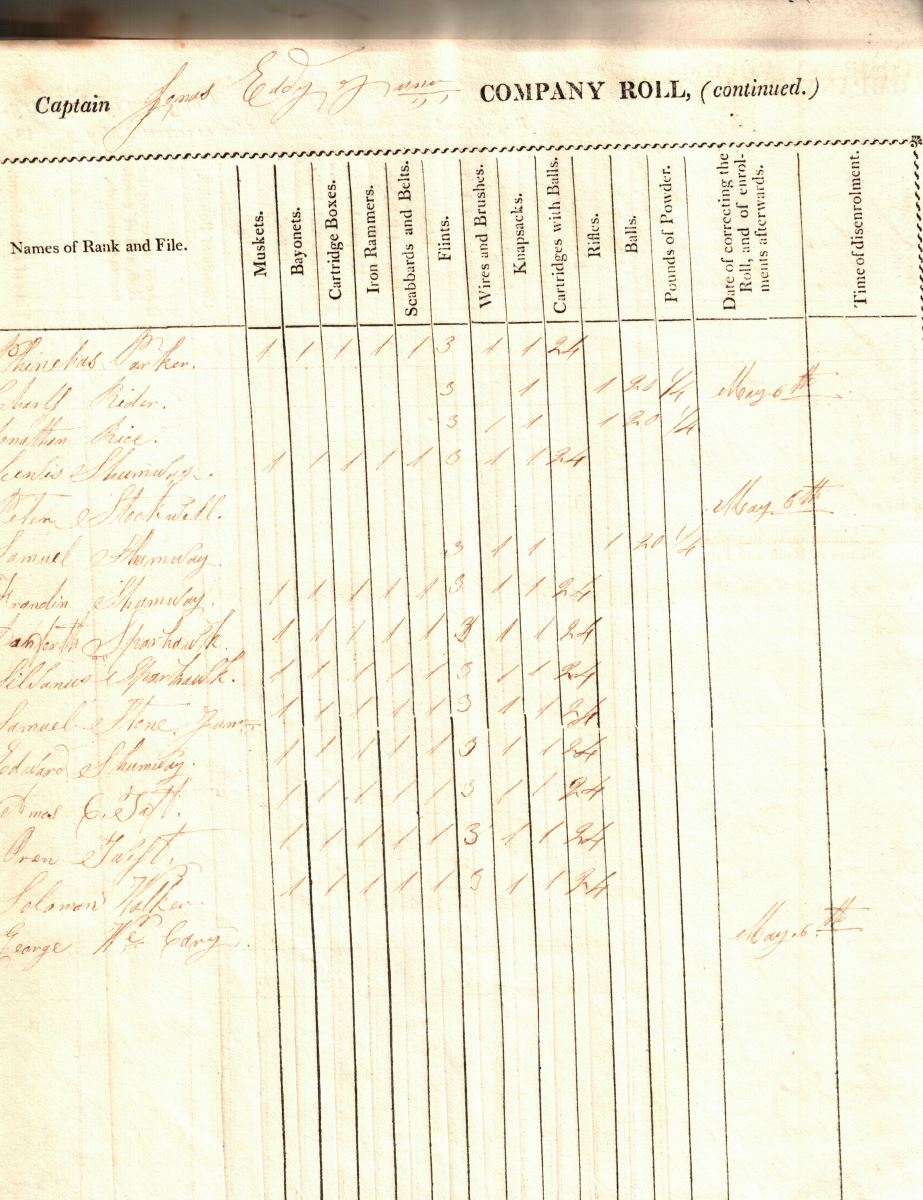 Captain Jonas Eddy COMPANY ROLL, (continued.)
Names of Rank and File. Muskets. Bayonets. Cartridge Boxes. Iron Rammers. Scabbards and Belts. Flints. Wires and Brushes. Knapsacks. Cartridges with Balls. Rifles. Balls. Pounds of Powder. Date of correcting the Roll, and of enrolments afterwards. Time of disenrolment.
Phinehas Parker. 1 1 1 1 1 3 1 1 24
Rider. 3 1 1 20 1/4 May 6th
Jonathan Rice. 3 1 1 1 20 1/4
Lewis Shumway. 1 1 1 1 1 3 1 1 24
Peter Stockwell. May 6th
Samuel Shumway 3 1 1 1 20 1/4
Shumway. 1 1 1 1 1 3 1 1 24
Danforth Sparhawk. 1 1 1 1 1 3 1 1 24
Silvanus Sparhawk. 1 1 1 1 1 3 1 1 24
Samuel Stone Junr 1 1 1 1 1 3 1 1 24
Edward Shumway. 1 1 1 1 1 3 1 1 24
Amos C. Taft. 1 1 1 1 1 3 1 1 24
Oren Taft. 1 1 1 1 1 3 1 1 24
Solomon Walker. 1 1 1 1 1 3 1 1 24
George Cary. May 6th